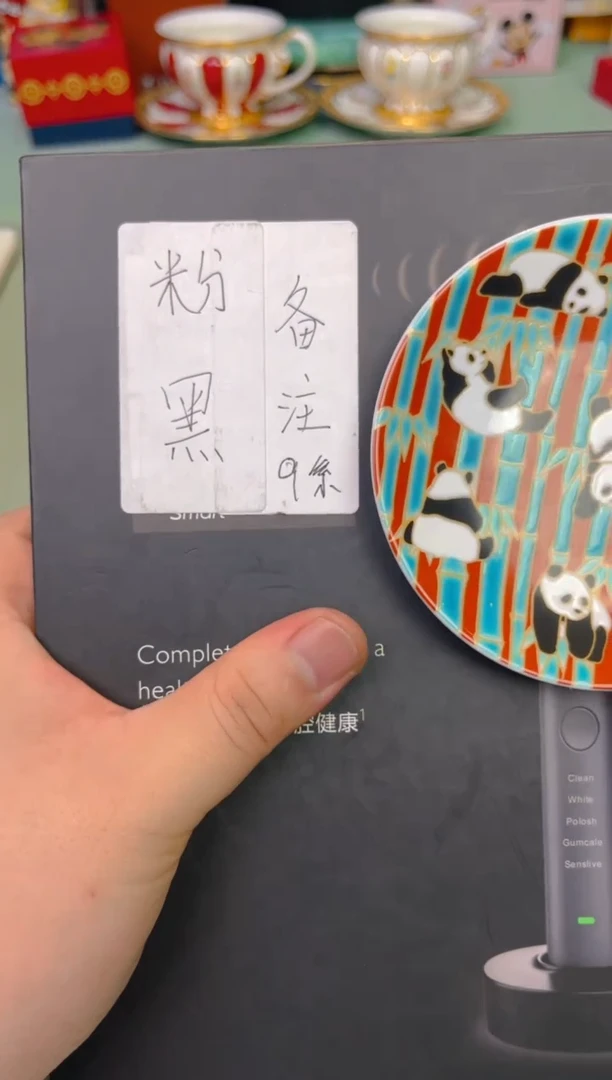 粉
黑
备
注
9条
Smart
Comple
a
hea
腔健康1
Clean
White
Polosh
Gumcale
Senslive